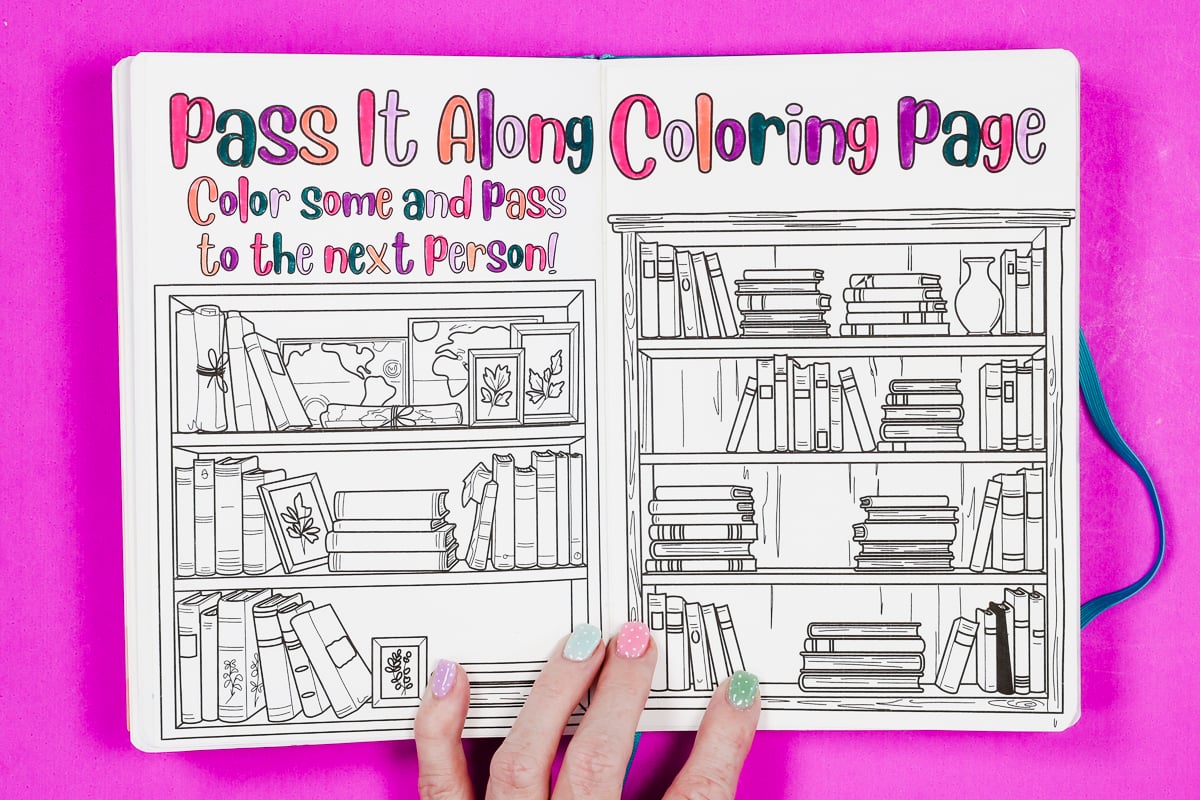 Pass It Along Coloring Page
Color some and Pass
to the next Person!